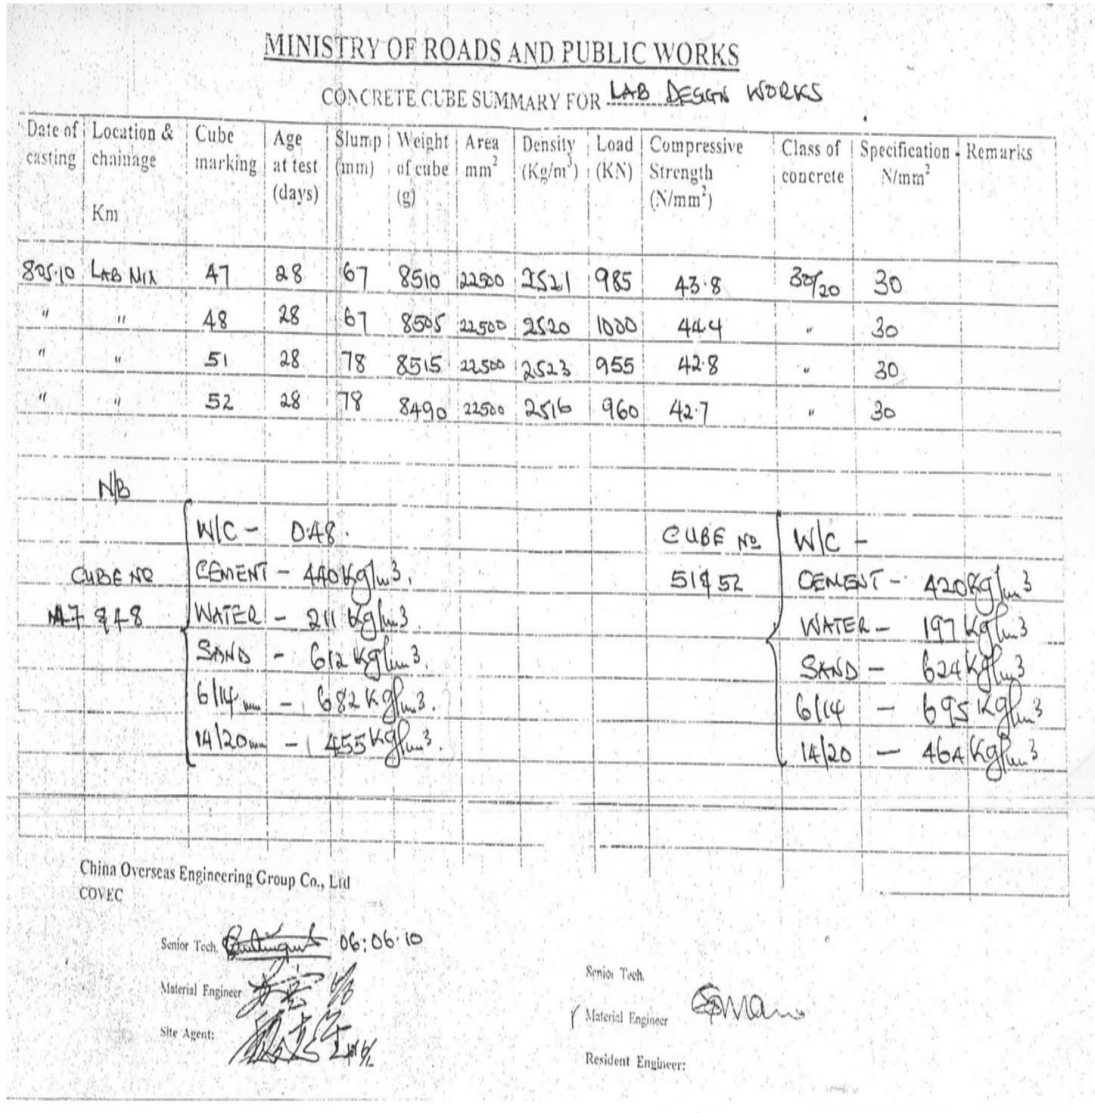 MINISTRY OF ROADS AND PUBLIC WORKS
CONCRETE CUBE SUMMARY FOR LAB DESIGN WORKS
Date of casting Location & chainage Km Cube marking Age at test (days) Slump (mm) Weight of cube (g) Area mm² Density (Kg/m³) Load (KN) Compressive Strength (N/mm²) Class of concrete Specification N/mm² Remarks
8.05.10 LAB MIX 47 28 67 8510 22500 2521 985 43.8 30/20 30
" " 48 28 67 8505 22500 2520 1000 44.4 " 30
" " 51 28 78 8515 22500 2523 955 42.8 " 30
" " 52 28 78 8490 22500 2516 960 42.7 " 30
N/B
CUBE NO 47 & 48
W/C - 0.48.
CEMENT - 440 Kg/m³.
WATER - 211 Kg/m³.
SAND - 612 Kg/m³.
6/14 mm - 682 Kg/m³.
14/20mm - 455 Kg/m³.
CUBE NO 51 & 52
W/C -
CEMENT - 420 Kg/m³
WATER - 197 Kg/m³
SAND - 624 Kg/m³
6/14 - 695 Kg/m³
14/20 - 464 Kg/m³
China Overseas Engineering Group Co., Ltd
COVEC
Senior Tech. 06:06.10
Material Engineer
Site Agent:
Senior Tech.
Material Engineer
Resident Engineer: